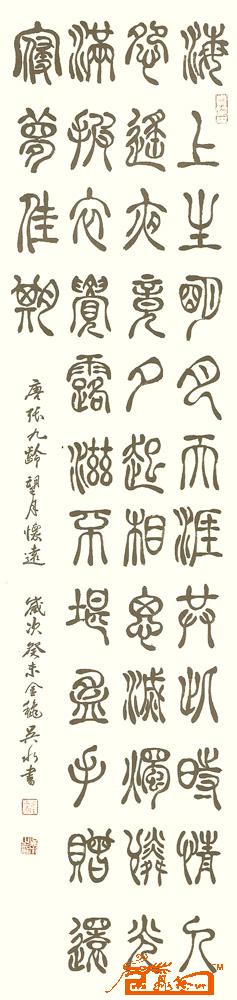 海上生明月天涯共此時情人
怨遙夜竟夕起相思滅燭憐光
滿披衣覺露滋不堪盈手贈還
寢夢佳期
唐張九齡望月懷遠 歲次癸未金穐吳水書
TM